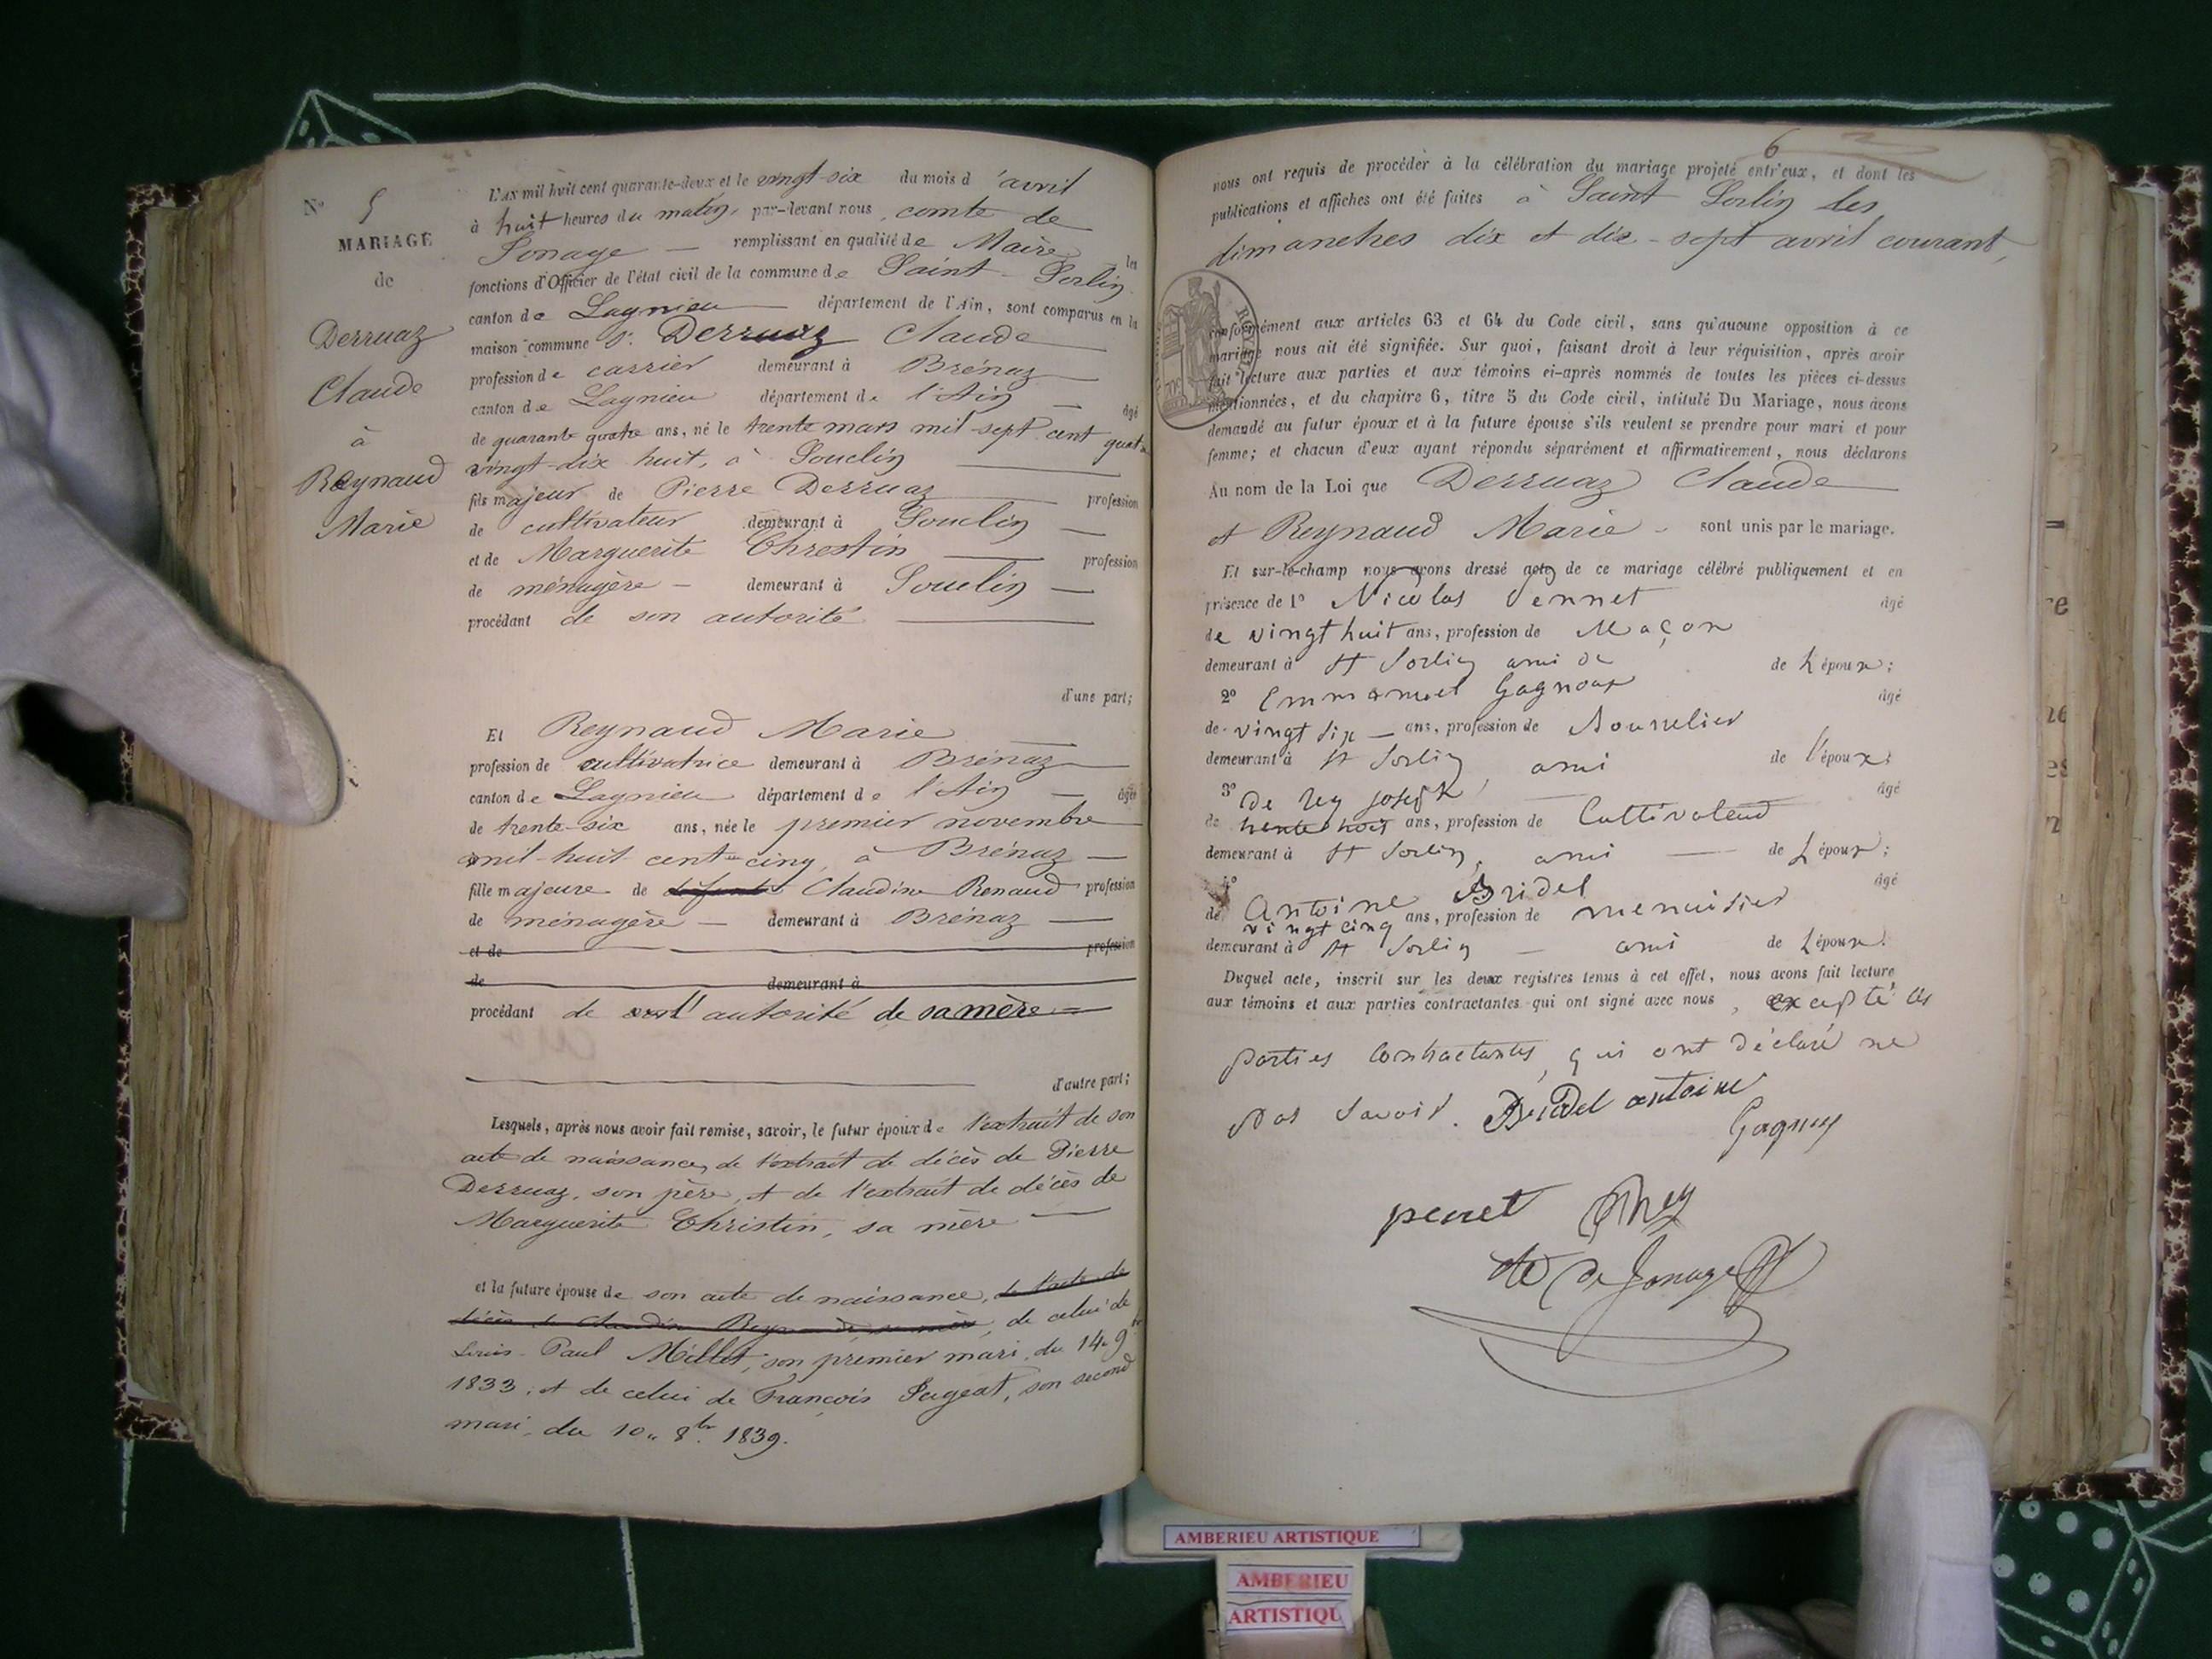 N° 5
MARIAGE
de
Derruaz
Claude
à
Reynaud
Marie
L'AN mil huit cent quarante-deux et le vingt-six du mois d'avril
à huit heures du matin, par-devant nous, comte de
Jonage — remplissant en qualité de Maire les
fonctions d'Officier de l'état civil de la commune de Saint-Sorlin
canton de Lagnieu département de l'Ain, sont comparus en la
maison commune Derruaz Claude
profession de carrier demeurant à Brénaz
canton de Lagnieu département de l'Ain — âgé
de quarante quatre ans, né le trente mars mil sept cent quatre
vingt-dix huit, à Souclin
fils majeur de Pierre Derruaz profession
de cultivateur demeurant à Souclin —
et de Marguerite Chrestin profession
de ménagère — demeurant à Souclin —
procédant de son autorité
d'une part;
Et Reynaud Marie
profession de cultivatrice demeurant à Brénaz
canton de Lagnieu département de l'Ain — âgée
de trente-six ans, née le premier novembre
mil-huit cent-cinq, à Brénaz —
fille majeure de Claudine Renaud profession
de ménagère — demeurant à Brénaz —
et de profession
de demeurant à
procédant de l'autorité de sa mère
d'autre part;
Lesquels, après nous avoir fait remise, savoir, le futur époux de l'extrait de son
acte de naissance, de l'extrait de décès de Pierre
Derruaz, son père, et de l'extrait de décès de
Marguerite Christin, sa mère —
et la future épouse de son acte de naissance, de l'acte de
décès de Claudine Reynaud, sa mère, de celui de
Louis-Paul Millet, son premier mari, du 14 9bre
1833; et de celui de François Pugeat, son second
mari, du 10 8br 1839.
6
nous ont requis de procéder à la célébration du mariage projeté entr'eux, et dont les
publications et affiches ont été faites à Saint Sorlin les
dimanches dix et dix-sept avril courant,
ROYAL
conformément aux articles 63 et 64 du Code civil, sans qu'aucune opposition à ce
mariage nous ait été signifiée. Sur quoi, faisant droit à leur réquisition, après avoir
fait lecture aux parties et aux témoins ci-après nommés de toutes les pièces ci-dessus
mentionnées, et du chapitre 6, titre 5 du Code civil, intitulé Du Mariage, nous avons
demandé au futur époux et à la future épouse s'ils veulent se prendre pour mari et pour
femme; et chacun d'eux ayant répondu séparément et affirmativement, nous déclarons
Au nom de la Loi que Derruaz Claude
et Reynaud Marie - sont unis par le mariage.
Et sur-le-champ nous avons dressé acte de ce mariage célébré publiquement et en
présence de 1° Nicolas Pennet âgé
de vingt huit ans, profession de Maçon
demeurant à St Sorlin ami de de l'époux;
2° Emmanuel Gagnoux âgé
de vingt six — ans, profession de Bourrelier
demeurant à St Sorlin, ami de l'époux;
3° de rey joseph âgé
de trente trois ans, profession de Cultivateur
demeurant à St Sorlin, ami — de l'époux;
4° Antoine Bridel âgé
de vingt cinq ans, profession de menuisier
demeurant à St Sorlin — ami de l'époux.
Duquel acte, inscrit sur les deux registres tenus à cet effet, nous avons fait lecture
aux témoins et aux parties contractantes qui ont signé avec nous, excepté les
parties contractantes, qui ont déclaré ne
pas savoir. Bridel antoine
Gagnux
pennet Rey
cte de Jonage
AMBERIEU ARTISTIQUE
AMBERIEU
ARTISTIQU